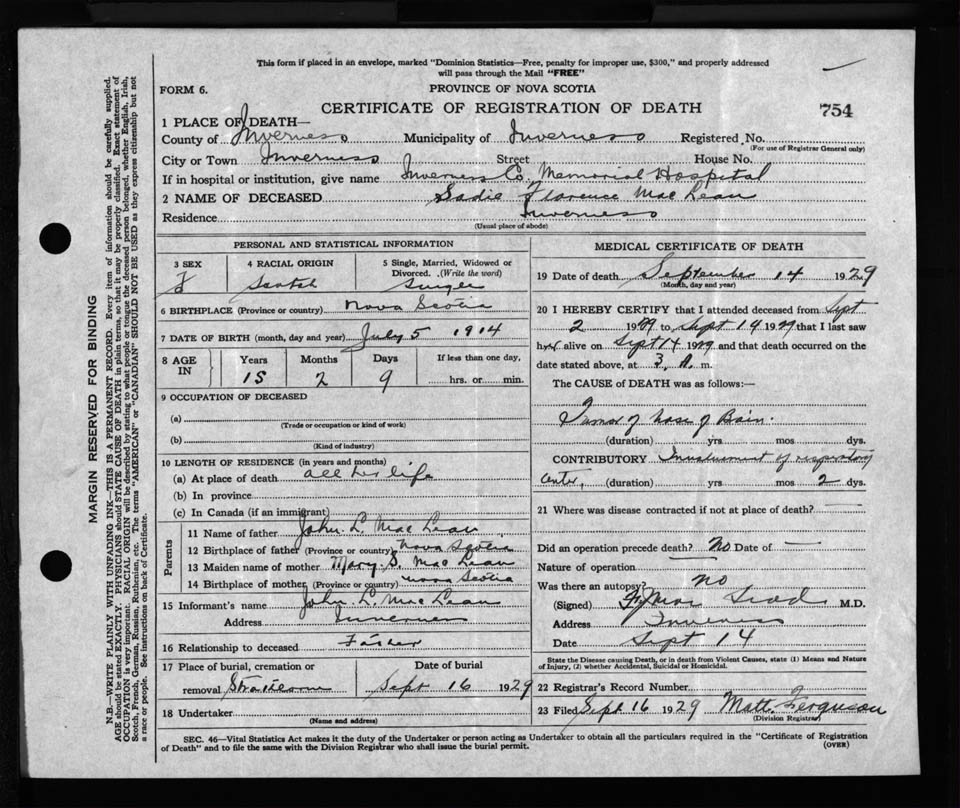 This form if placed in an envelope, marked "Dominion Statistics—Free, penalty for improper use, $300," and properly addressed
will pass through the Mail "FREE"
FORM 6. PROVINCE OF NOVA SCOTIA
CERTIFICATE OF REGISTRATION OF DEATH 754
1 PLACE OF DEATH—
County of Inverness Municipality of Inverness Registered No.
(For use of Registrar General only)
City or Town Inverness Street House No.
If in hospital or institution, give name Inverness Co. Memorial Hospital
2 NAME OF DECEASED Sadie Florence MacLean
Residence Inverness
(Usual place of abode)
PERSONAL AND STATISTICAL INFORMATION
3 SEX 4 RACIAL ORIGIN 5 Single, Married, Widowed or Divorced. (Write the word)
F Scotch Single
6 BIRTHPLACE (Province or country) Nova Scotia
7 DATE OF BIRTH (month, day and year) July 5 1914
8 AGE IN Years Months Days If less than one day,
15 2 9 hrs. or min.
9 OCCUPATION OF DECEASED
(a)
(Trade or occupation or kind of work)
(b)
(Kind of industry)
10 LENGTH OF RESIDENCE (in years and months)
(a) At place of death all her life
(b) In province
(c) In Canada (if an immigrant)
Parents
11 Name of father John L. MacLean
12 Birthplace of father (Province or country) Nova Scotia
13 Maiden name of mother Mary S. MacLean
14 Birthplace of mother (Province or country) Nova Scotia
15 Informant's name John L. MacLean
Address Inverness
16 Relationship to deceased Father
17 Place of burial, cremation or Date of burial
removal Sept 16 1929
18 Undertaker
(Name and address)
MEDICAL CERTIFICATE OF DEATH
19 Date of death September 14 1929
(Month, day and year)
20 I HEREBY CERTIFY that I attended deceased from Sept
2 1929 to Sept 14 1929 that I last saw
her alive on Sept 14 1929 and that death occurred on the
date stated above, at 3 A. m.
The CAUSE OF DEATH was as follows:—
Tumor of base of Brain.
(duration) yrs mos dys.
CONTRIBUTORY Involvement of respiratory
center, (duration) yrs mos 2 dys.
21 Where was disease contracted if not at place of death?
Did an operation precede death? No Date of —
Nature of operation
Was there an autopsy? no
(Signed) M.D.
Address Inverness
Date Sept 14
State the Disease causing Death, or in death from Violent Causes, state (1) Means and Nature
of Injury, (2) whether Accidental, Suicidal or Homicidal.
22 Registrar's Record Number
23 Filed Sept 16 1929 Matt. Ferguson
(Division Registrar)
SEC. 46—Vital Statistics Act makes it the duty of the Undertaker or person acting as Undertaker to obtain all the particulars required in the "Certificate of Registration
of Death" and to file the same with the Division Registrar who shall issue the burial permit. (OVER)
MARGIN RESERVED FOR BINDING
N.B.—WRITE PLAINLY WITH UNFADING INK—THIS IS A PERMANENT RECORD. Every item of information should be carefully supplied.
AGE should be stated EXACTLY. PHYSICIANS should STATE CAUSE OF DEATH in plain terms, so that it may be properly classified. Exact statement of
OCCUPATION is very important. RACIAL ORIGIN will be described by stating to what people or tongue the deceased person belonged, whether English, Irish,
Scotch, French, German, Russian, Ruthenian, etc. The terms "AMERICAN" or "CANADIAN" SHOULD NOT BE USED as they express citizenship but not
a race or people. See instructions on back of Certificate.